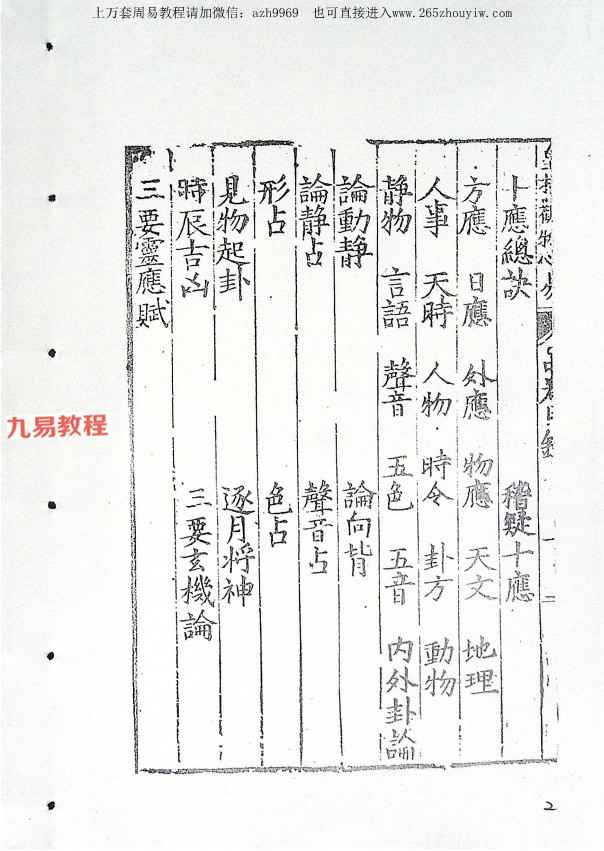 上万套周易教程请加微信：azh9969　也可直接进入www.265zhouyiw.com
十應總訣　稽疑十應
方應　日應　外應　物應　天文　地理
人事　天時　人物　時令　卦方　動物
静物　言語　聲音　五色　五音　内外卦論
論動静　論向背
論静占　聲音占
形占　色占
見物起卦　逐月将神
時辰吉凶　三要玄機論
三要靈應賦
九易教程
2